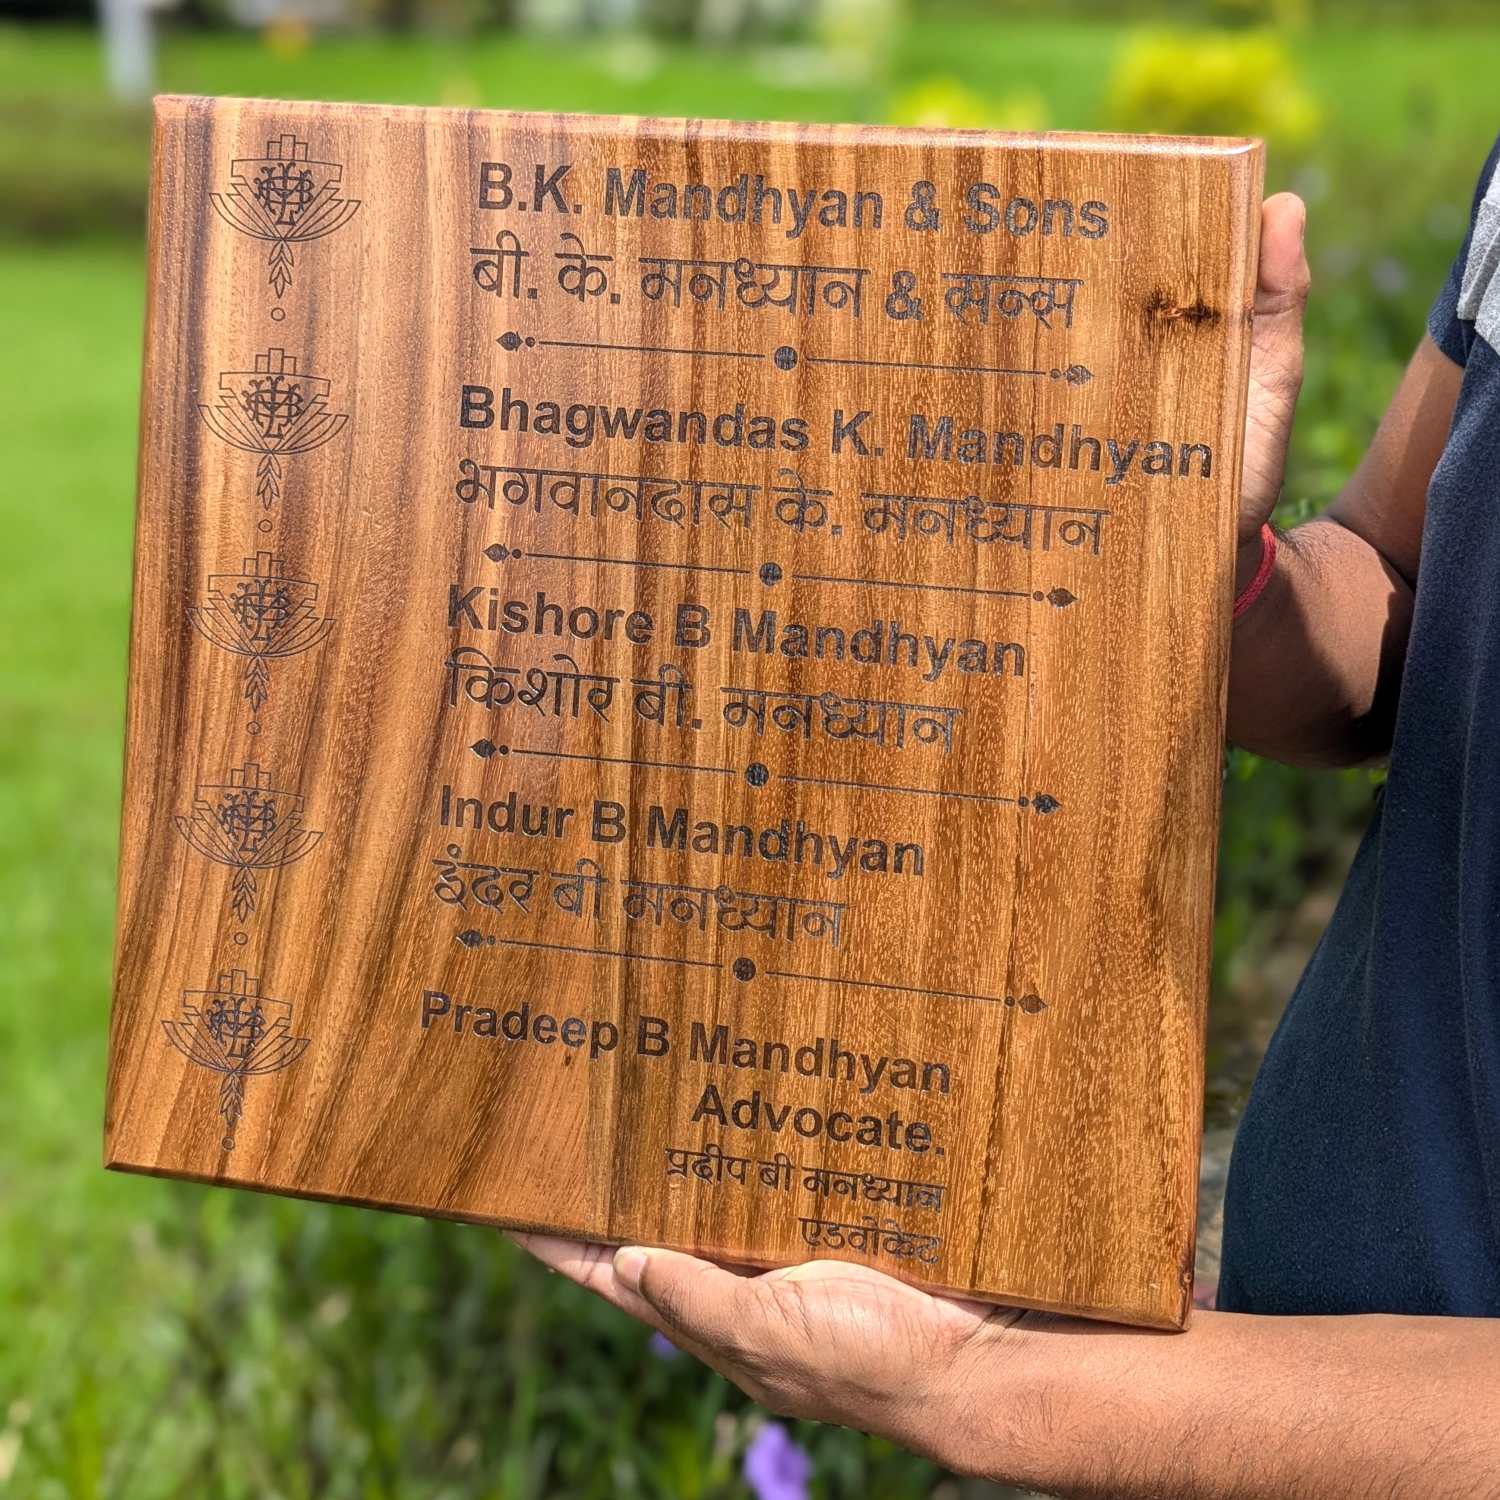 B.K. Mandhyan & Sons
बी. के. मनध्यान & सन्स
Bhagwandas K. Mandhyan
भगवानदास के. मनध्यान
Kishore B Mandhyan
किशोर बी. मनध्यान
Indur B Mandhyan
इंदर बी मनध्यान
Pradeep B Mandhyan
Advocate.
प्रदीप बी मनध्यान
एडवोकेट